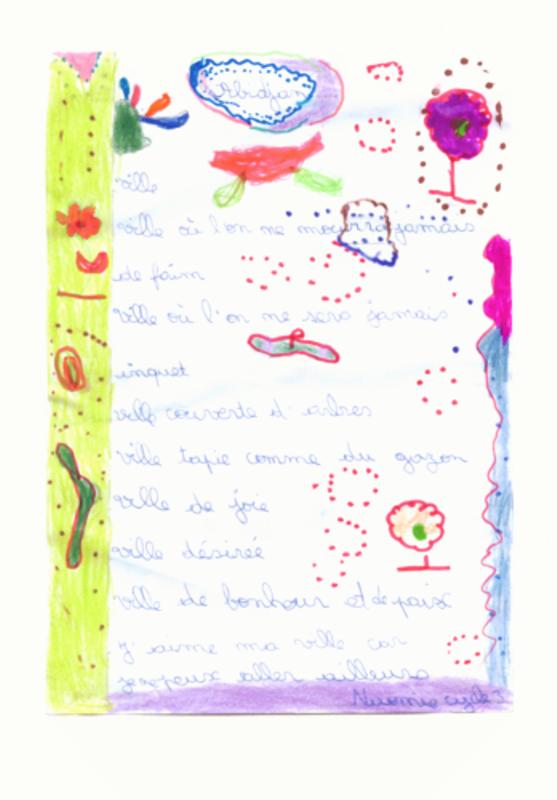 Abidjan
ville
ville où l'on ne mourra jamais
de faim
ville où l'on ne sera jamais
inquet
ville couverte d'arbres
ville tapie comme du gazon
ville de joie
ville désirée
ville de bonheur et de paix
j'aime ma ville car
je peux aller ailleurs
cycle 3